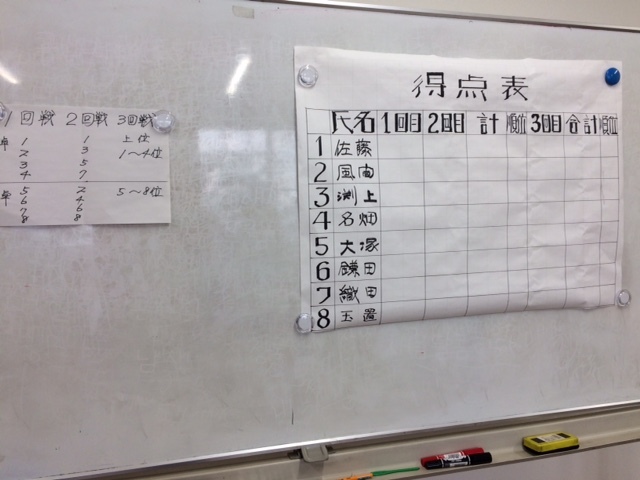 1回戦 2回戦 3回戦
卓 1 1 上位
2 3 1〜4位
3 5
4 7
卓 5 2 5〜8位
6 4
7 6
8 8
得点表
氏名 1回目 2回目 計 順位 3回目 合計 順位
1 佐藤
2 風間
3 渕上
4 名畑
5 大塚
6 鎌田
7 織田
8 玉置